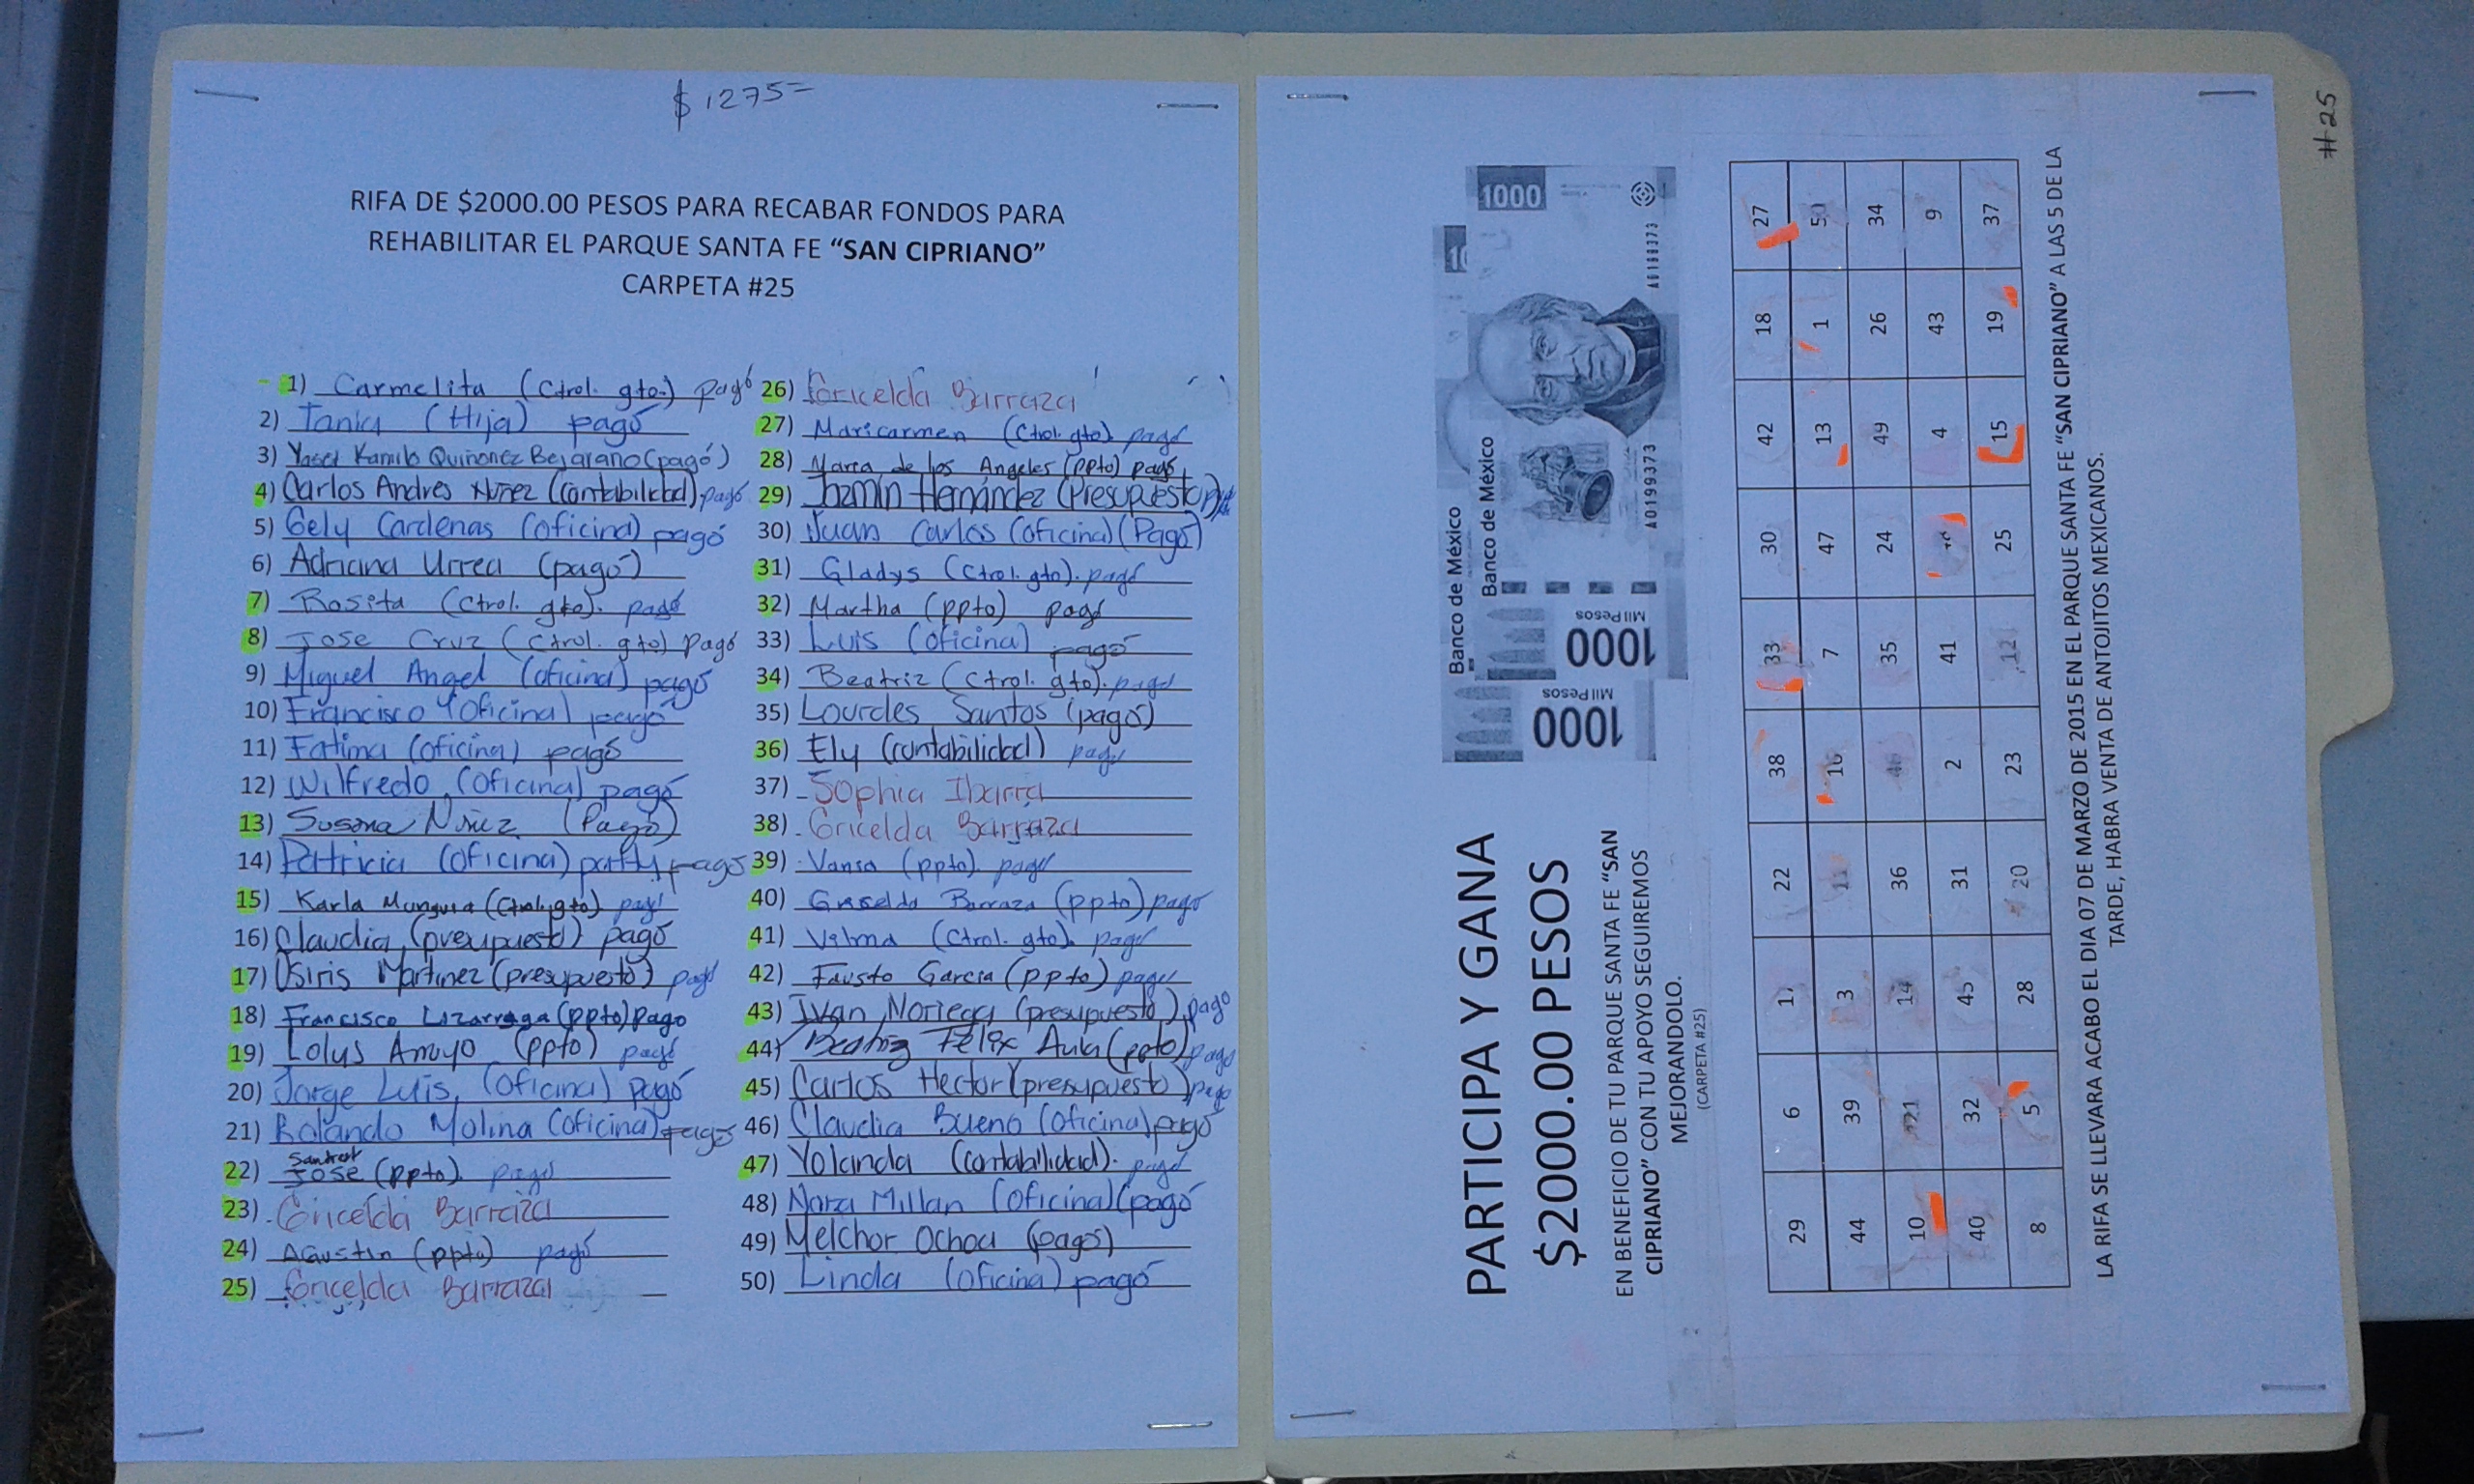 $1275=
RIFA DE $2000.00 PESOS PARA RECABAR FONDOS PARA
REHABILITAR EL PARQUE SANTA FE “SAN CIPRIANO”
CARPETA #25
1) Carmelita (Ctrol. gto.) pagó
2) Tania (Hija) pagó
3) Yasel Kamilo Quiñonez Bejarano (pagó)
4) Carlos Andres Nuñez (contabilidad) pagó
5) Gely Cardenas (oficina) pagó
6) Adriana Urrea (pagó)
7) Rosita (Ctrol. gto). pagó
8) Jose Cruz (Ctrol. gto) Pagó
9) Miguel Angel (oficina) pagó
10) Francisco (oficina) pagó
11) Fatima (oficina) pagó
12) Wilfredo (oficina) pagó
13) Susana Nuñez (Pagó)
14) Patricia (oficina) patty pagó
15) Karla Munguia (Ctrol. gto). pagó
16) Claudia (presupuesto) pagó
17) Osiris Martinez (presupuesto) pagó
18) Francisco Lizarraga (ppto) pago
19) Lolys Arroyo (ppto) pagó
20) Jorge Luis (oficina) pagó
21) Rolando Molina (oficina) pagó
22) Jose (ppto). pagó
23) Gricelda Barraza
24) Agustin (ppto) pagó
25) Gricelda Barraza
26) Gricelda Barraza
27) Maricarmen (Ctrol. gto). pagó
28) Maria de los Angeles (ppto) pagó
29) Jazmín Hernández (Presupuesto)
30) Juan Carlos (oficina) (Pagó)
31) Gladys (Ctrol. gto). pagó
32) Martha (ppto) pagó
33) Luis (oficina) pagó
34) Beatriz (Ctrol. gto). pagó
35) Lourdes Santos (pagó)
36) Ely (contabilidad) pagó
37) Sophia Ibarra
38) Gricelda Barraza
39) Vansa (ppto). pagó
40) Griselda Barraza (ppto) pagó
41) Vilma (Ctrol. gto). pagó
42) Fausto Garcia (ppto) pagó
43) Ivan Noriega (presupuesto) pagó
44) Beatriz Félix (ppto) pagó
45) Carlos Hector (presupuesto) pago
46) Claudia Bueno (oficina) pagó
47) Yolanda (contabilidad). pagó
48) Nora Millan (oficina) (pagó
49) Melchor Ochoa (pagó)
50) Linda (oficina) pagó
#25
PARTICIPA Y GANA
$2000.00 PESOS
EN BENEFICIO DE TU PARQUE SANTA FE “SAN
CIPRIANO” CON TU APOYO SEGUIREMOS
MEJORANDOLO.
(CARPETA #25)
Banco de México
Mil Pesos
1000
Banco de México
Mil Pesos
1000
1000
29 6 17 22 38 33 30 42 18 27
44 39 3 11 16 7 47 13 1 50
10 21 14 36 46 35 24 49 26 34
40 32 45 31 2 41 4 43 9
8 5 28 20 23 12 25 15 19 37
LA RIFA SE LLEVARA ACABO EL DIA 07 DE MARZO DE 2015 EN EL PARQUE SANTA FE “SAN CIPRIANO” A LAS 5 DE LA
TARDE, HABRA VENTA DE ANTOJITOS MEXICANOS.